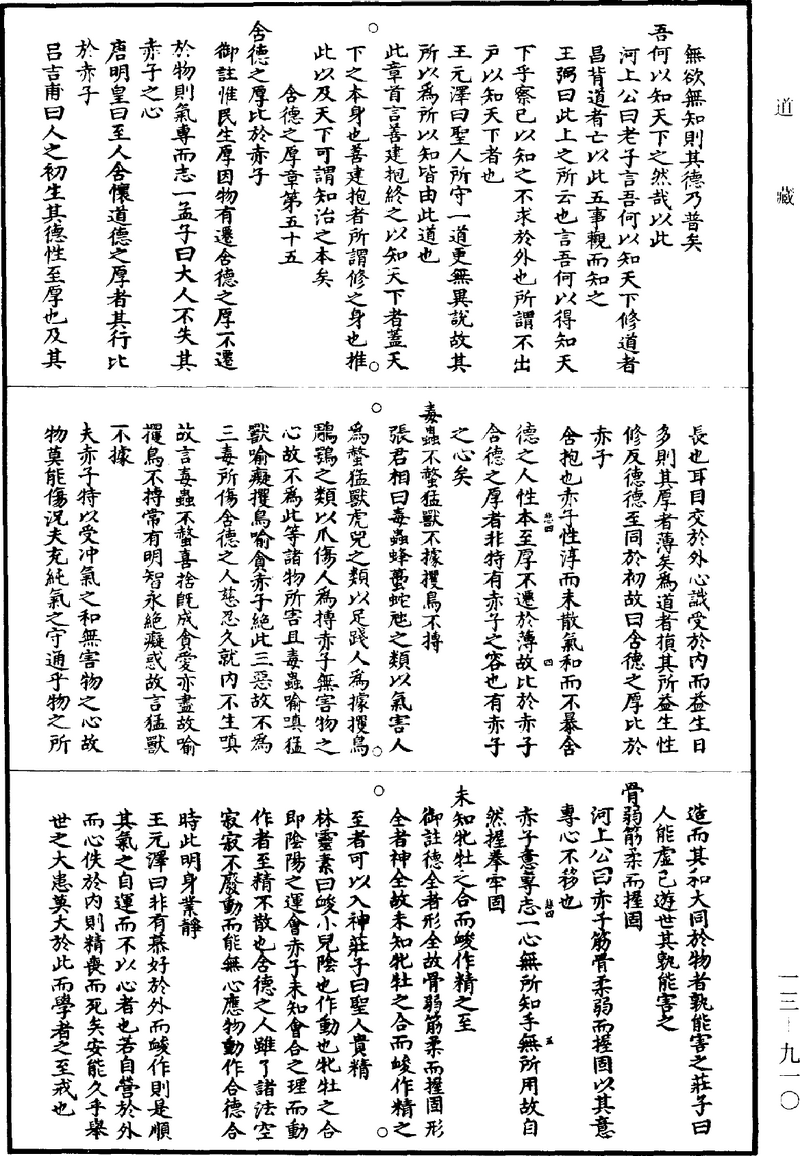 道藏
無欲無知則其德乃普矣
吾何以知天下之然哉以此
河上公曰老子言吾何以知天下修道者
昌背道者亡以此五事觀而知之
王弼曰此上之所云也言吾何以得知天
下乎察已以知之不求於外也所謂不出
戶以知天下者也
王元澤曰聖人所守一道更無異說故其
所以為所以知皆由此道也
此章首言善建抱終之以知天下者蓋天
下之本身也善建抱者所謂修之身也推
此以及天下可謂知治之本矣
含德之厚章第五十五
含德之厚比於赤子
御註惟民生厚因物有遷含德之厚不遷
於物則氣專而志一孟子曰大人不失其
赤子之心
唐明皇曰至人含懷道德之厚者其行比
於赤子
呂吉甫曰人之初生其德性至厚也及其
長也耳目交於外心識受於內而益生日
多則其厚者薄矣為道者損其所益生性
修反德德至同於初故曰含德之厚比於
赤子
舍抱也赤子性淳而未散氣和而不暴含
德之人性本至厚不遷於薄故比於赤子
含德之厚者非特有赤子之容也有赤子
之心矣
毒蟲不螫猛獸不據攫鳥不搏
張君相曰毒蟲蜂蠆蛇虺之類以氣害人
為螫猛獸虎兕之類以足踐人為據攫鳥
鵰鶚之類以爪傷人為搏赤子無害物之
心故不為此等諸物所害且毒蟲喻嗔猛
獸喻癡攫鳥喻貪赤子絕此三惡故不為
三毒所傷含德之人慈忍久就內不生嗔
故言毒蟲不螫喜捨旣成貪愛亦盡故喻
攫鳥不搏常有明智永絕癡惑故言猛獸
不據
夫赤子特以受沖氣之和無害物之心故
物莫能傷況夫充純氣之守通乎物之所
造而其和大同於物者孰能害之莊子曰
人能虛已遊世其孰能害之
骨弱筋柔而握固
河上公曰赤子筋骨柔弱而握固以其意
專心不移也
赤子意專志一心無所知手無所用故自
然握拳牢固
未知牝牡之合而峻作精之至
御註德全者形全故骨弱筋柔而握固形
全者神全故未知牝牡之合而峻作精之
至者可以入神莊子曰聖人貴精
林靈素曰峻小兒陰也作動也牝牡之合
即陰陽之運會赤子未知會合之理而動
作者至精不散也含德之人雖了諸法空
寂寂不廢動而能無心應物動作合德合
時此明身業靜
王元澤曰非有慕好於外而峻作則是順
其氣之自運而不以心者也若自營於外
而心佚於內則精喪而死矣安能久乎舉
世之大患莫大於此而學者之至戒也
一三-九一〇